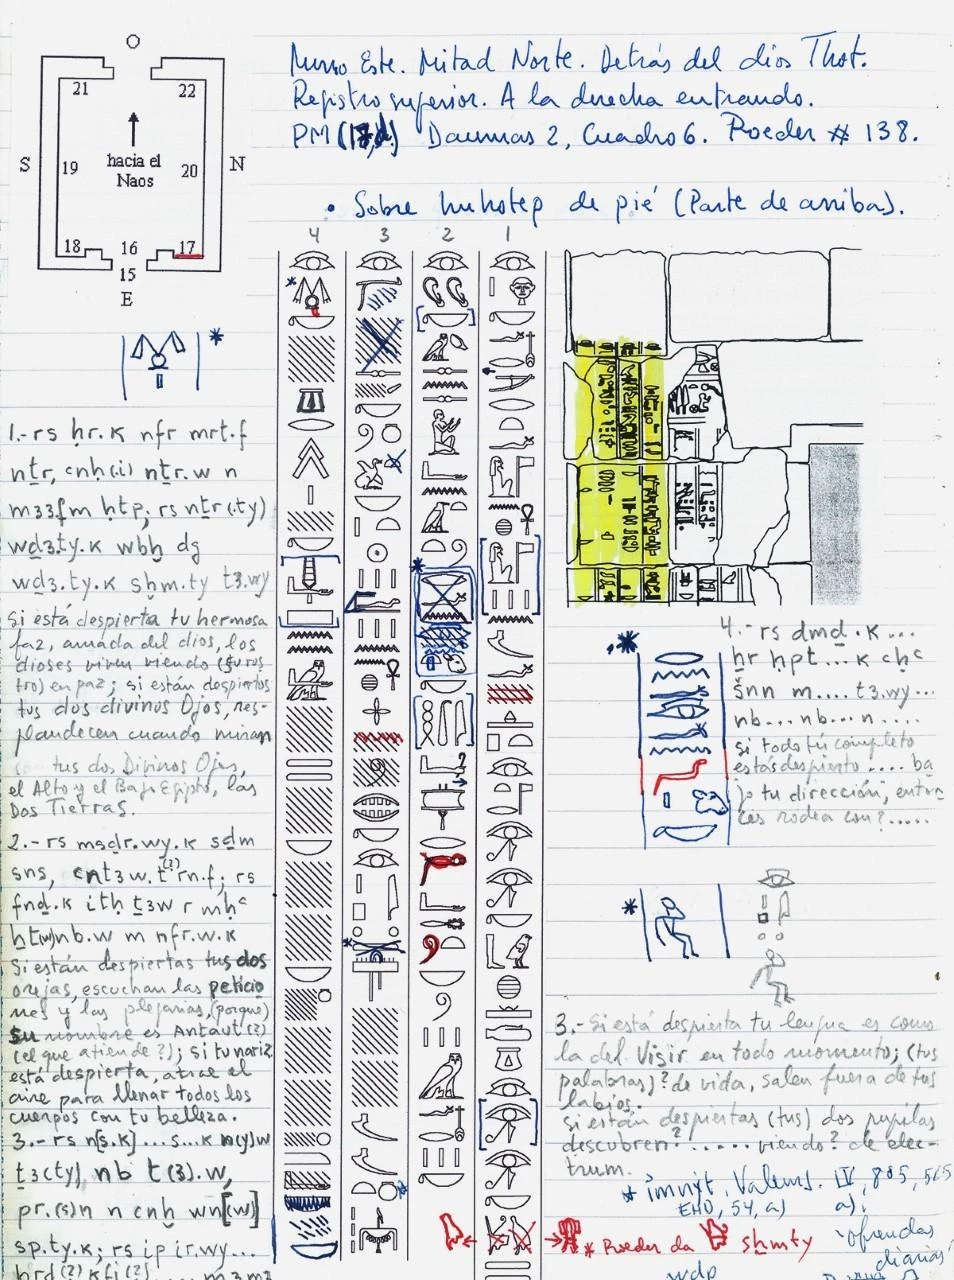 O
21 22
S 19 hacia el Naos 20 N
18 16 17
15
E
Muro Este. Mitad Norte. Detrás del dios Thot.
Registro superior. A la derecha entrando.
PM (17,d) Daumas 2, Cuadro 6. Roeder # 138.
• Sobre Imhotep de pié (Parte de arriba).
4 3 2 1
*
1.- rs ḥr.k nfr mrt.f
nṯr, cnḫ(i) nṯr.w n
m33.f m ḥtp; rs nṯr(.ty)
wḏ3.ty.k wbḫ dg
wḏ3.ty.k sḫm.ty t3.wy
Si está despierta tu hermosa
faz, amada del dios, los
dioses viven viendo (tu ros
tro) en paz; si están despiertos
tus dos divinos Ojos, res-
plandecen cuando miran
tus dos Divinos Ojos,
el Alto y el Bajo Egipto, las
Dos Tierras.
2.- rs msḏr.wy.k sḏm
sns, cnt3w.t(?) rn.f; rs
fnḏ.k itḥ ṯ3w r mḥc
ẖt(w) nb.w m nfr.w.k
Si están despiertas tus dos
orejas, escuchan las peticio
nes y las plegarias, (porque)
su nombre es Antaut(?)
(el que atiende?); si tu nariz
está despierta, atrae el
aire para llenar todos los
cuerpos con tu belleza.
3.- rs n[s.k]...s...k m(y)w
ṯ3(ty), nb t(3).w,
pr.(s)n n cnḫ wn[(w)]
sp.ty.k; rs ip ir.wy...
4.- rs dmḏ.k...
ḥr ḥpt...k cḥc
šnn m....t3.wy...
nb...nb...n....
si todo tú completo
estás despierto....ba
jo tu dirección, enton
ces rodea con?.....
3.- Si está despierta tu lengua es como
la del Visir en todo momento; (tus
palabras)? de vida, salen fuera de tus
labios.
si están despiertas (tus) dos pupilas
descubren?......viendo? de elec-
trum.
* imnyt, Valeurs. IV, 805, 565
EHD, 54, a) a).
* Roeder da sḫmty
ofrendas
diarias
wdp